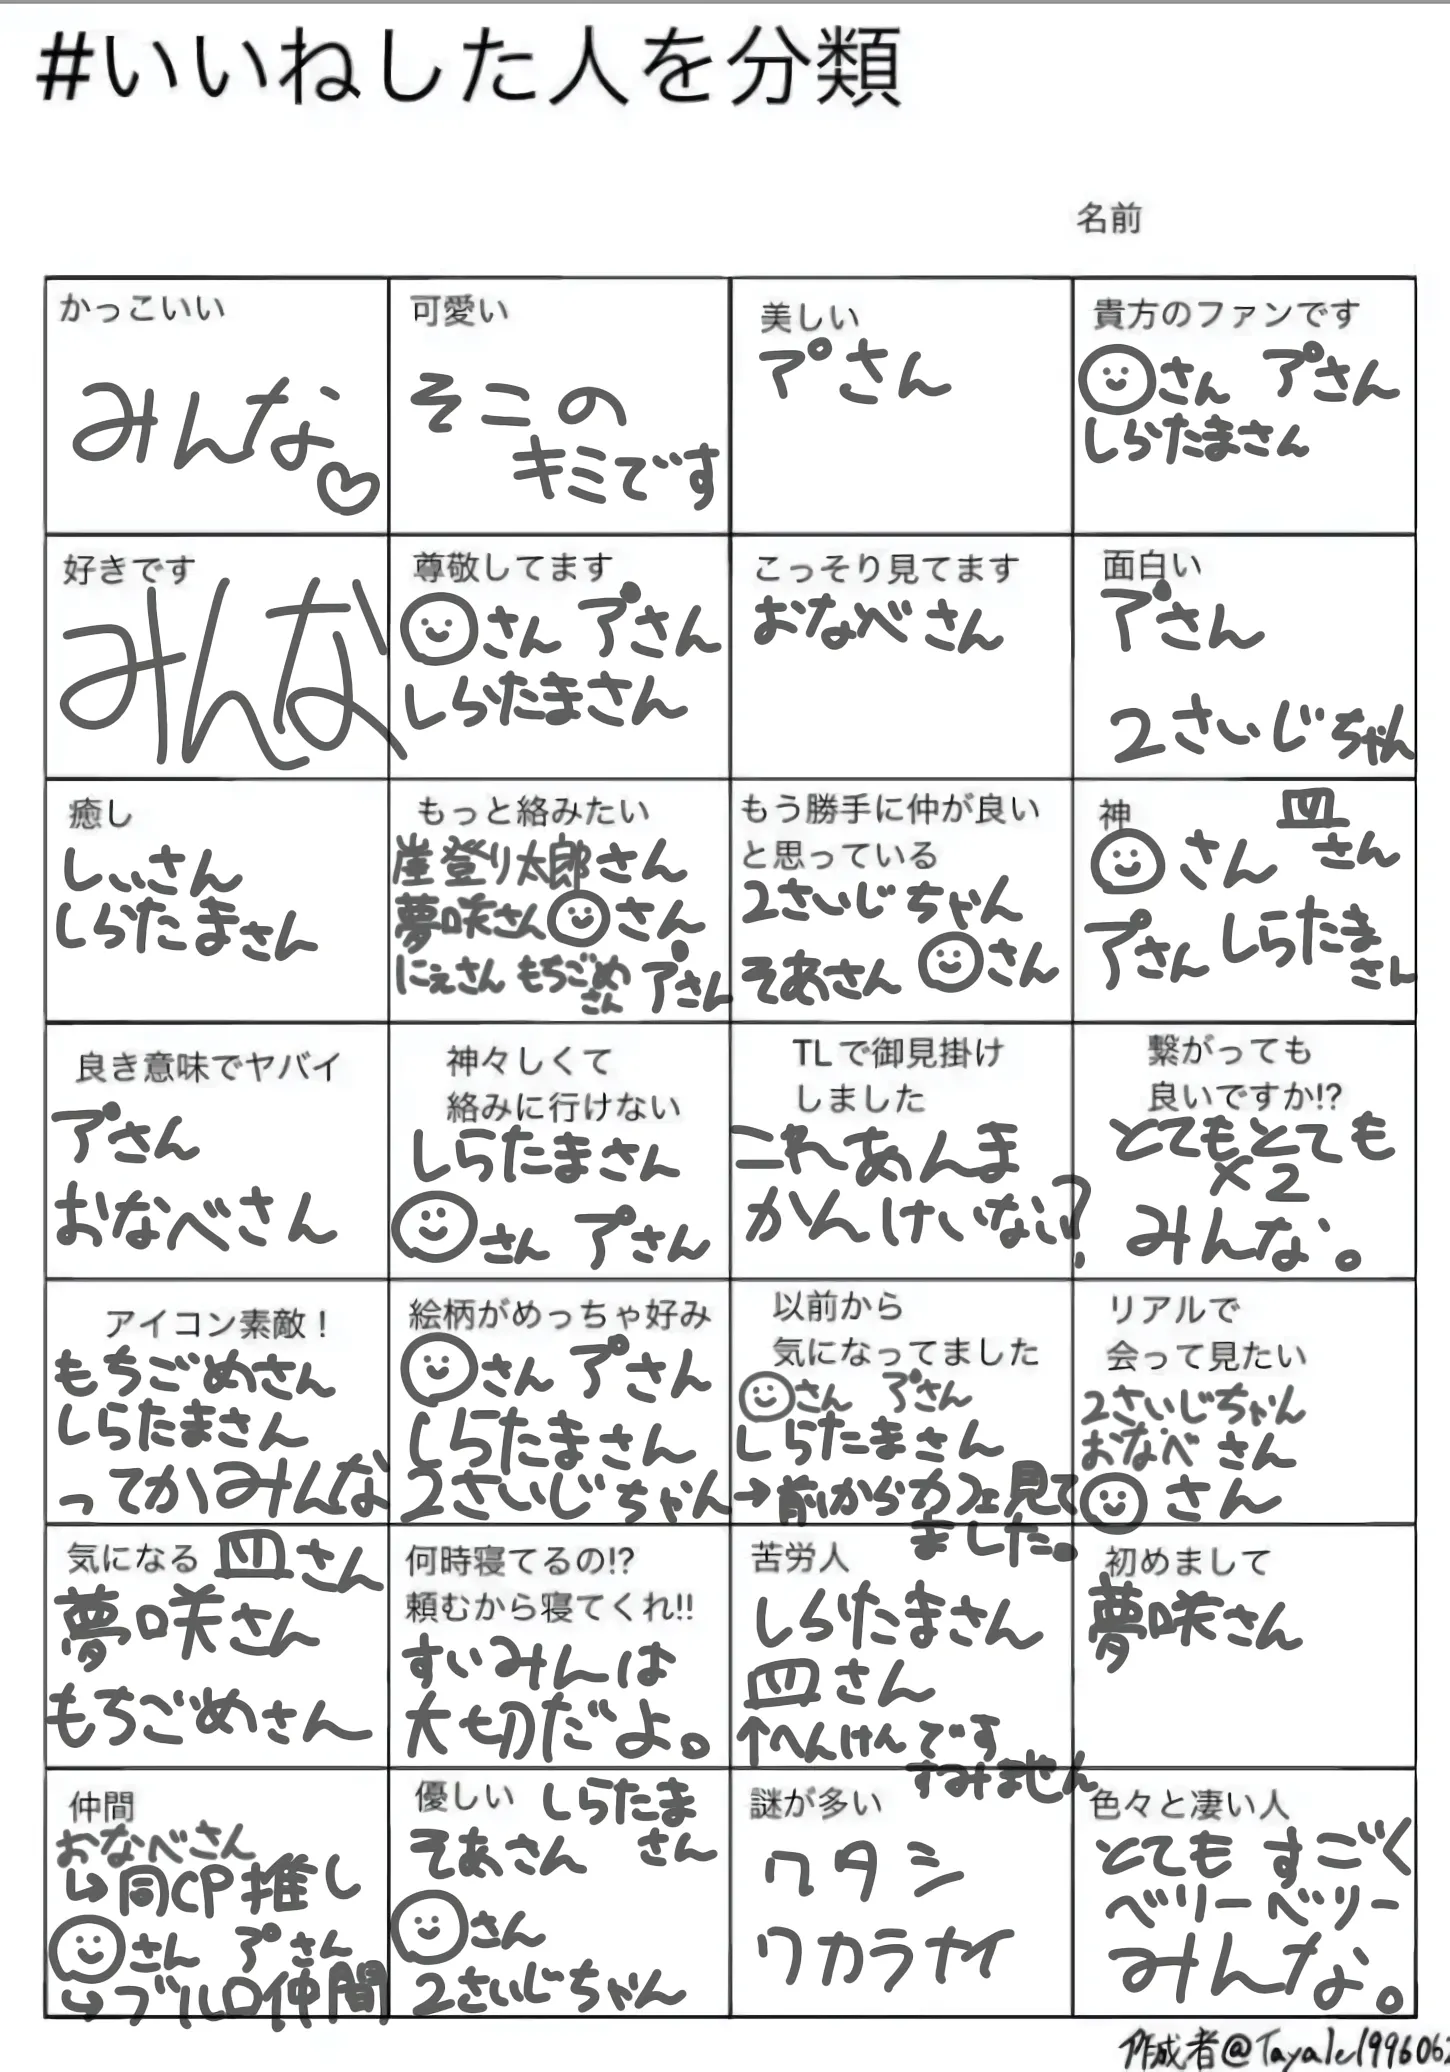 #いいねした人を分類
名前
かっこいい
みんな♡
可愛い
そこの
キミです
美しい
プさん
貴方のファンです
☺さん プさん
しらたまさん
好きです
みんな
尊敬してます
☺さん プさん
しらたまさん
こっそり見てます
おなべさん
面白い
プさん
2さいじちゃん
癒し
しぃさん
しらたまさん
もっと絡みたい
崖登り太郎さん
夢咲さん ☺さん
にぇさん もちごめさん プさん
もう勝手に仲が良い
と思っている
2さいじちゃん
そあさん ☺さん
神 皿さん
☺さん
プさん しらたまさん
良き意味でヤバイ
プさん
おなべさん
神々しくて
絡みに行けない
しらたまさん
☺さん プさん
TLで御見掛け
しました
これあんま
かんけいない?
繋がっても
良いですか!?
とてもとても
×2
みんな。
アイコン素敵！
もちごめさん
しらたまさん
ってかみんな
絵柄がめっちゃ好み
☺さん プさん
しらたまさん
2さいじちゃん
以前から
気になってました
☺さん プさん
しらたまさん
→前からカフェ見て
ました。
リアルで
会って見たい
2さいじちゃん
おなべさん
☺さん
気になる 皿さん
夢咲さん
もちごめさん
何時寝てるの!?
頼むから寝てくれ!!
すいみんは
大切だよ。
苦労人
しらたまさん
皿さん
↑へんけんです
すみません
初めまして
夢咲さん
仲間
おなべさん
↳同CP推し
☺さん プさん
↳ブルロ仲間
優しい しらたまさん
そあさん
☺さん
2さいじちゃん
謎が多い
ワタシ
ワカラナイ
色々と凄い人
とてもすごく
ベリーベリー
みんな。
作成者@